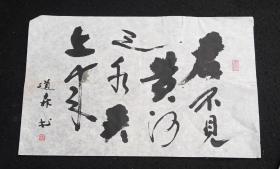 君不見
黄河
之水天
上来
道森书